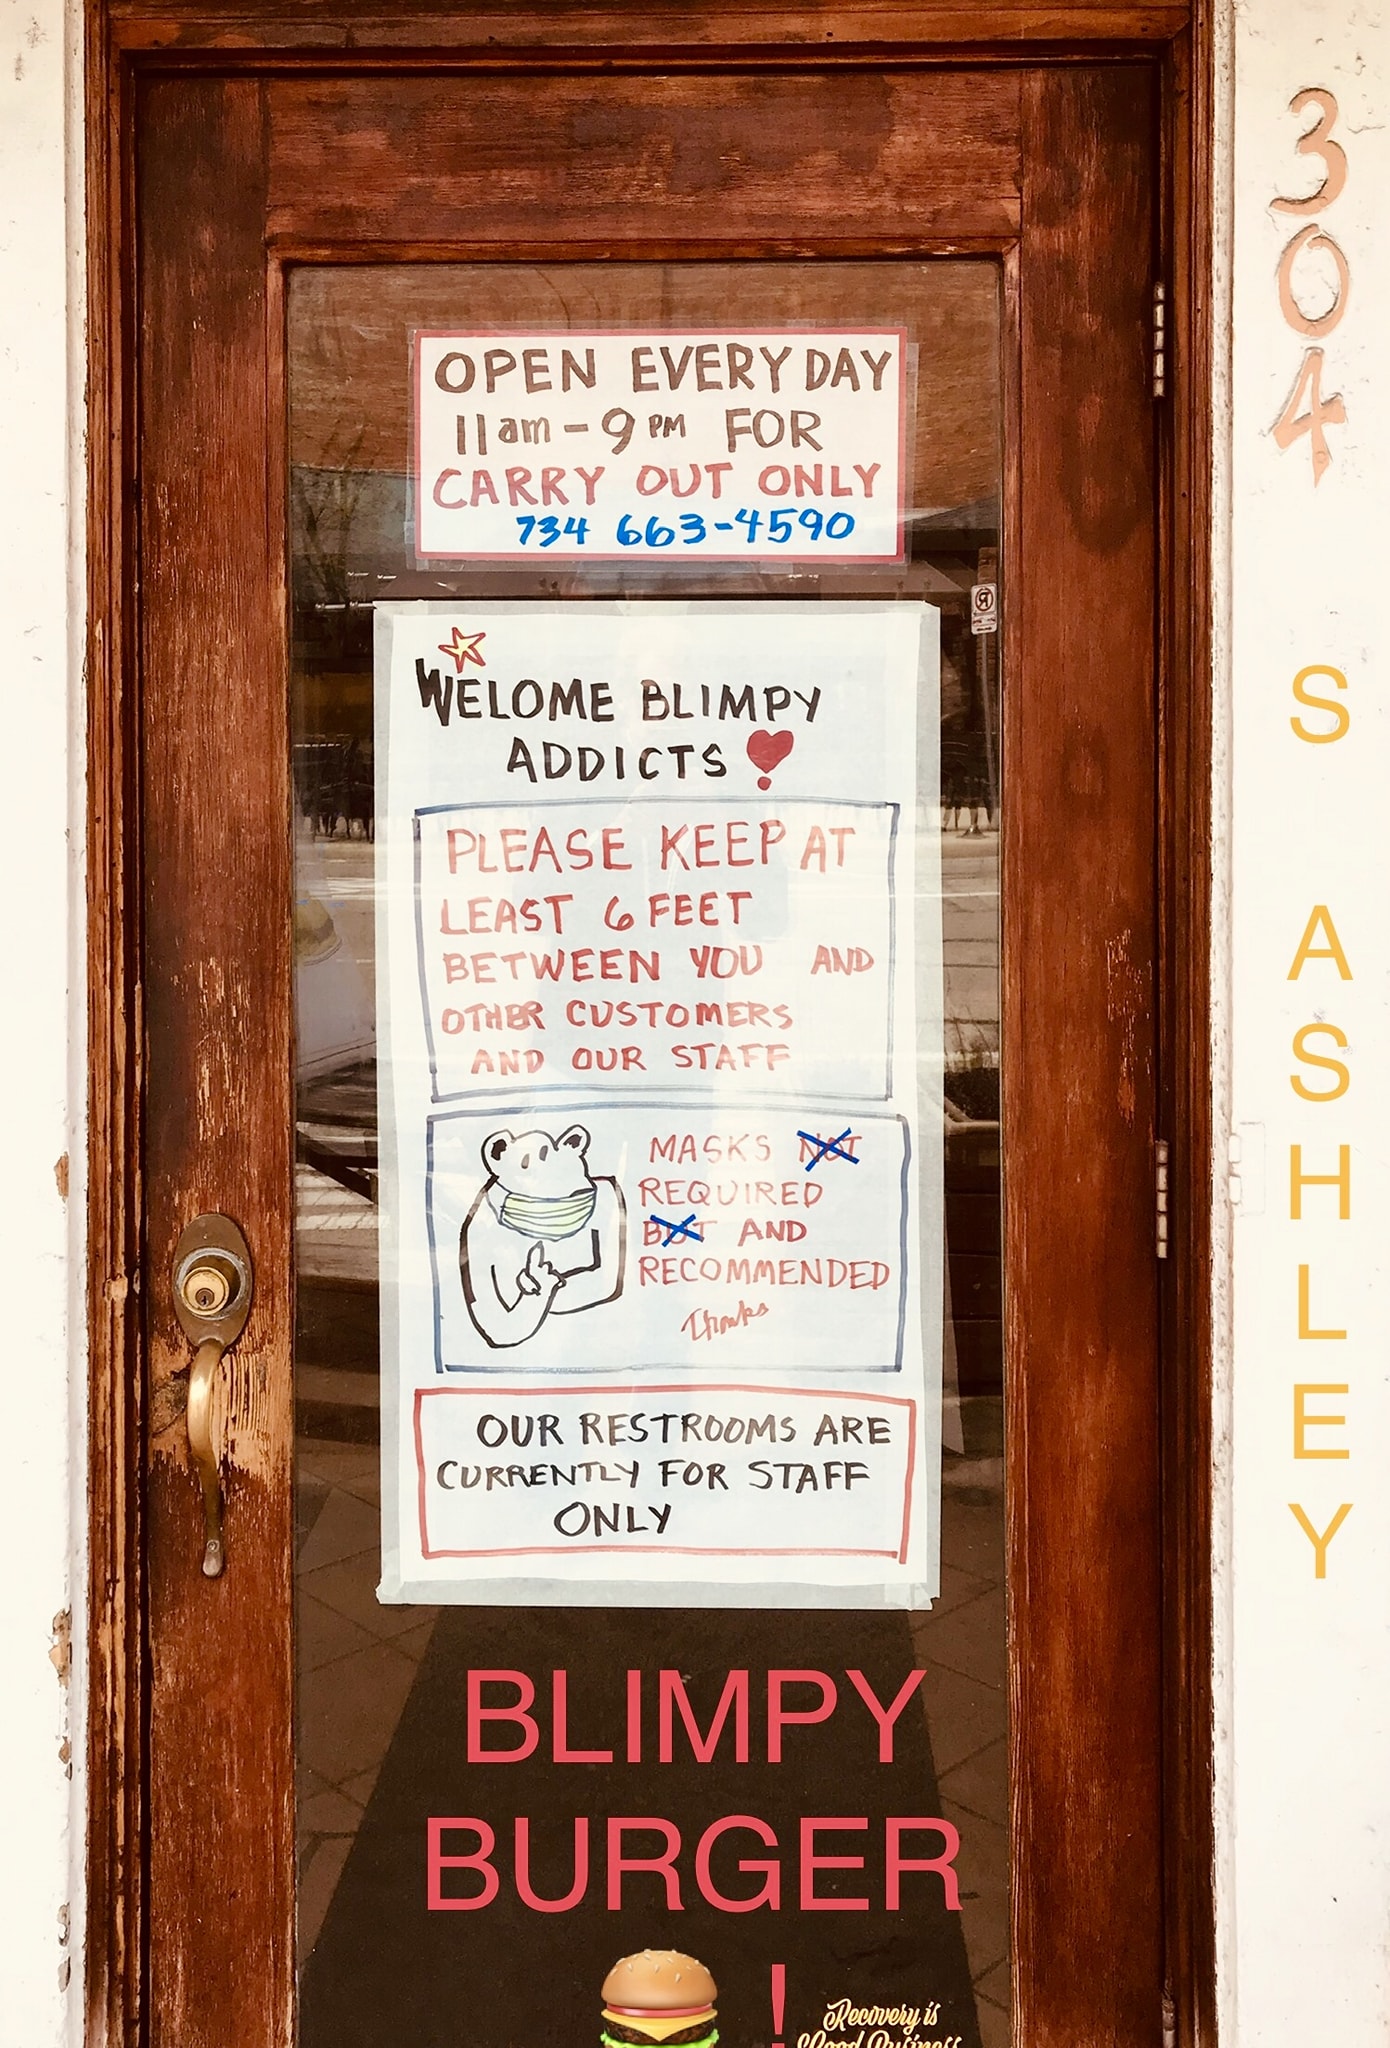 OPEN EVERY DAY
11am-9PM FOR
CARRY OUT ONLY
734 663-4590
WELOME BLIMPY
ADDICTS
PLEASE KEEP AT
LEAST 6 FEET
BETWEEN YOU AND
OTHER CUSTOMERS
AND OUR STAFF
MASKS NOT
REQUIRED
BUT AND
RECOMMENDED
Thanks
OUR RESTROOMS ARE
CURRENTLY FOR STAFF
ONLY
BLIMPY
BURGER
!
Recovery is
Good Business
304
S ASHLEY